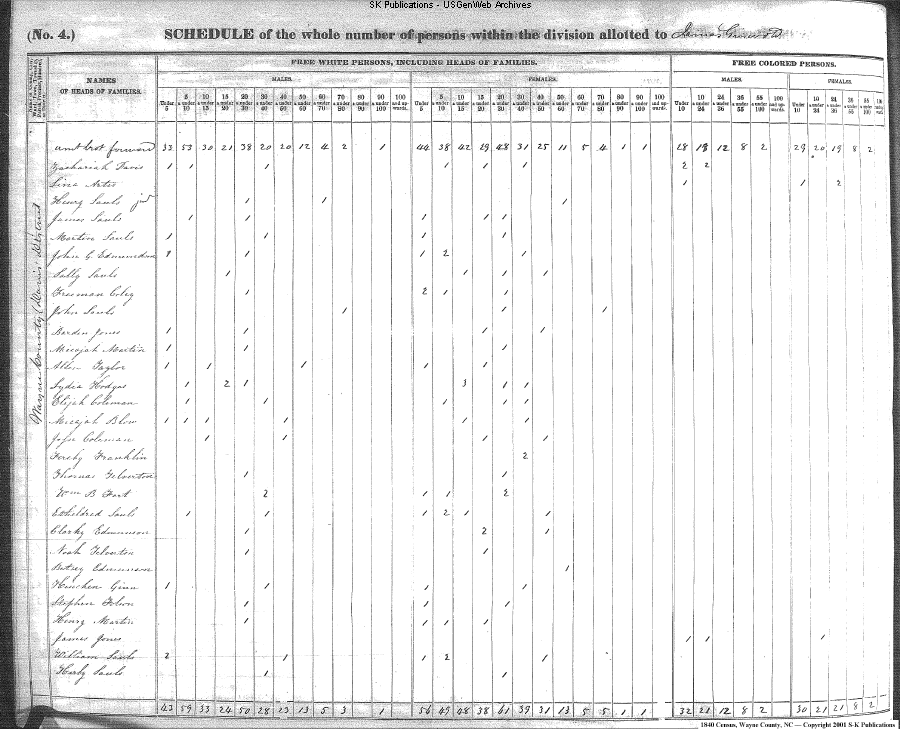 SK Publications - USGenWeb Archives
(No. 4.) SCHEDULE of the whole number of persons within the division allotted to James
FREE WHITE PERSONS, INCLUDING HEADS OF FAMILIES. FREE COLORED PERSONS.
NAMES OF HEADS OF FAMILIES. MALES. FEMALES. MALES. FEMALES.
Under 5 5 & under 10 10 & under 15 15 & under 20 20 & under 30 30 & under 40 40 & under 50 50 & under 60 60 & under 70 70 & under 80 80 & under 90 90 & under 100 100 and upwards. Under 5 5 & under 10 10 & under 15 15 & under 20 20 & under 30 30 & under 40 40 & under 50 50 & under 60 60 & under 70 70 & under 80 80 & under 90 90 & under 100 100 and upwards. Under 10 10 & under 24 24 & under 36 36 & under 55 55 & under 100 100 and upwards. Under 10 10 & under 24 24 & under 36 36 & under 55 55 & under 100
Wayne County
amt brot forward 33 53 30 21 38 20 20 12 4 2 1 44 38 42 29 48 31 25 11 5 4 1 1 28 18 12 8 2 29 20 19 8 2
Zachariah Davis 1 1 1 1 1 1 2 2
1 1 2
Henry Sauls 1 1 1
James Sauls 1 1 1 1 1
Martin Sauls 1 1 1 1
John G Edmundson 1 1 1 2 1
Sally Sauls 1 1 1 1
Freeman Coley 1 2 1 1
John Sauls 1 1 1
Barden Jones 1 1 1 1
Micajah Martin 1 1 1
Allen Taylor 1 1 1 1 1
Lydia Hodges 1 2 1 3 1 1
Elijah Coleman 1 1 1 1 1
Micajah Blow 1 1 1 1 1 1
Coleman 1 1 1 1
Franklin 2
Thomas Yelverton 1 1
Wm B Fort 2 1 1 2
Etheldred Sauls 1 1 1 2 1 1
Edmunson 1 2 1
Noah Yelverton 1 1
Betsey Edmunson 1
Ginn 1 1 1 1
Stephen 1 1 1
Henry Martin 1 1 1 1
James Jones 1 1 1
William Sauls 2 1 1 2 1
Sauls 1 1
43 59 33 24 50 28 23 13 5 3 1 56 49 48 38 61 39 31 13 5 5 1 1 32 21 12 8 2 30 21 21 8 2
1840 Census, Wayne County, NC — Copyright 2001 S-K Publications